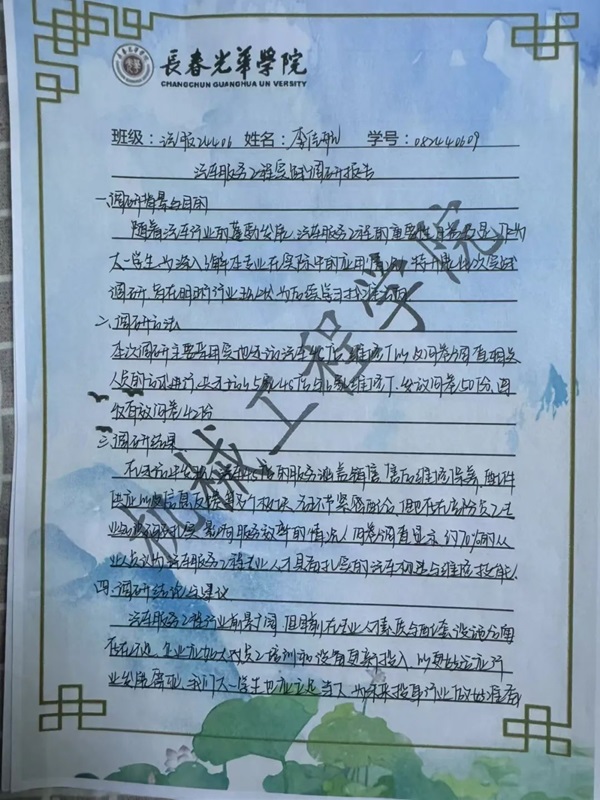 長春光華學院
CHANGCHUN GUANGHUA UNIVERSITY
班级：汽服24406 姓名：李 学号：082440609
汽车服务工程实践调研报告
一、调研背景与目的
随着汽车行业的蓬勃发展，汽车服务工程的重要性日益凸显。作为
大一学生，为深入了解本专业在实际中的应用情况，特开展此次实践
调研，旨在明晰行业现状，为后续学习找准方向。
二、调研方法
本次调研主要采用实地走访汽车4S店、维修厂以及问卷调查相关
人员的方式进行，共走访5家4S店与3家维修厂，发放问卷50份，回
收有效问卷42份
三、调研结果
在走访中发现，汽车4S店的服务涵盖销售、售后维修保养、配件
供应以及信息反馈等多个板块，各环节紧密配合，但也存在部分员工专
业知识不够扎实，影响服务效率的情况。问卷调查显示，约70%的从
业人员认为汽车服务工程专业人才具有扎实的汽车构造与维修技能。
四、调研结论与建议
汽车服务工程行业前景广阔，但目前在专业人才素质与配套设施方面
存在不足，企业应加大对员工培训和设备更新投入，以更好适应行
业发展需要，我们大一学生也应立足当下，为未来投身行业做好准备
机械工程学院